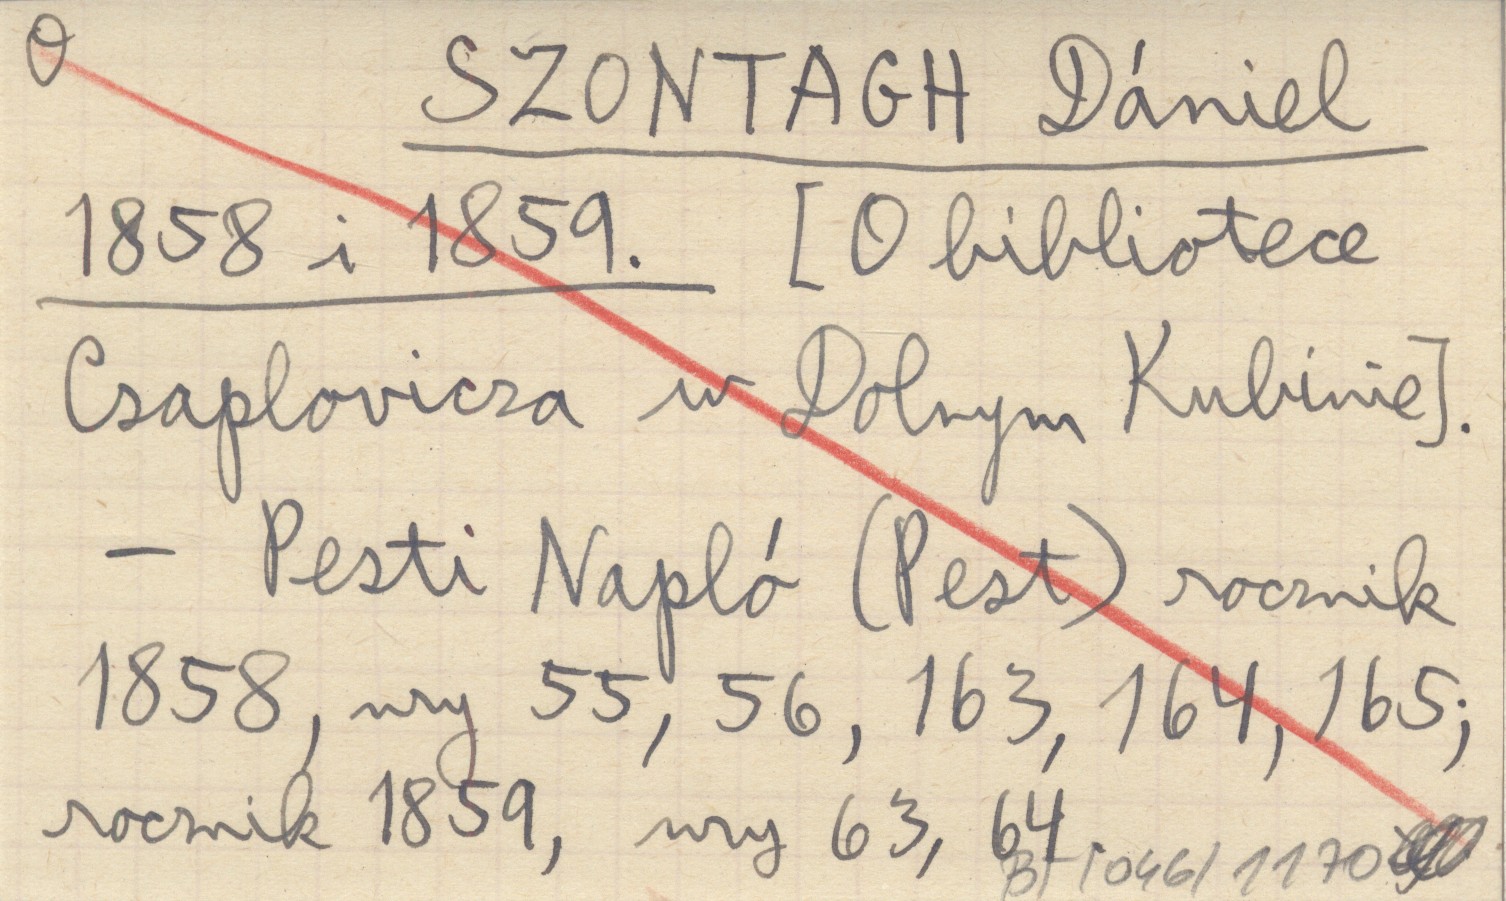 O
SZONTAGH Dániel
1858 i 1859. [O bibliotece
Csaplovicza w Dolnym Kubinie].
— Pesti Napló (Pest) rocznik
1858, nry 55, 56, 163, 164, 165;
rocznik 1859, nry 63, 64.
046/1170